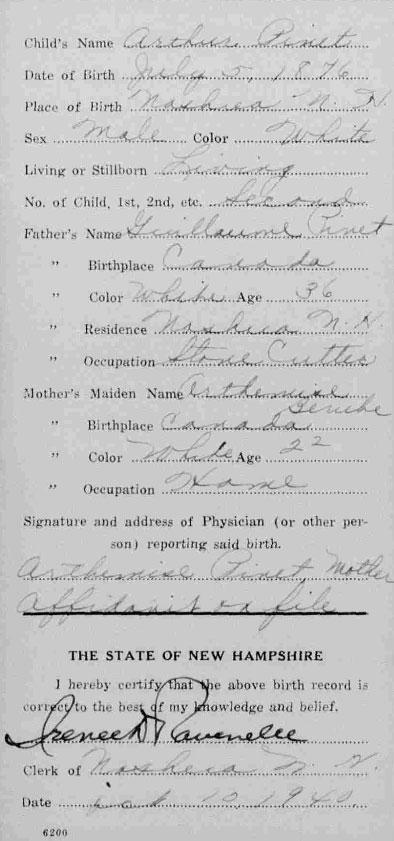 Child's Name Arthur Pinet
Date of Birth July 5, 1876
Place of Birth Nashua N. H.
Sex Male Color White
Living or Stillborn Living
No. of Child, 1st, 2nd, etc. Second
Father's Name Guillaume Pinet
" Birthplace Canada
" Color White Age 36
" Residence Nashua N. H.
" Occupation Stone Cutter
Mother's Maiden Name Arthemise
Berube
" Birthplace Canada
" Color White Age 22
" Occupation Home
Signature and address of Physician (or other per-
son) reporting said birth.
Arthemise Pinet, Mother
Affidavit on file
THE STATE OF NEW HAMPSHIRE
I hereby certify that the above birth record is
correct to the best of my knowledge and belief.
Irenee D Ravenelle
Clerk of Nashua N. H.
Date 10, 1940
6200